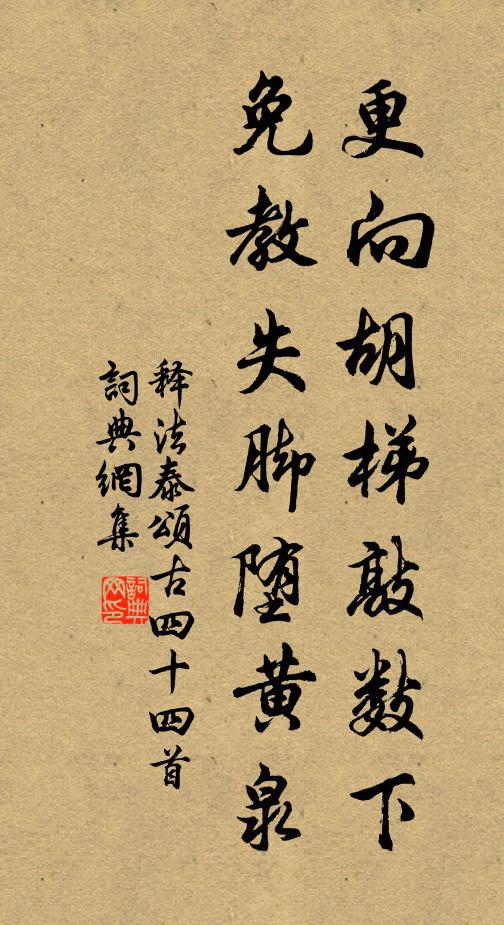 更向胡梯敲数下
免教失脚堕黄泉
释法泰颂古四十四首
詞典網集
詞典网印